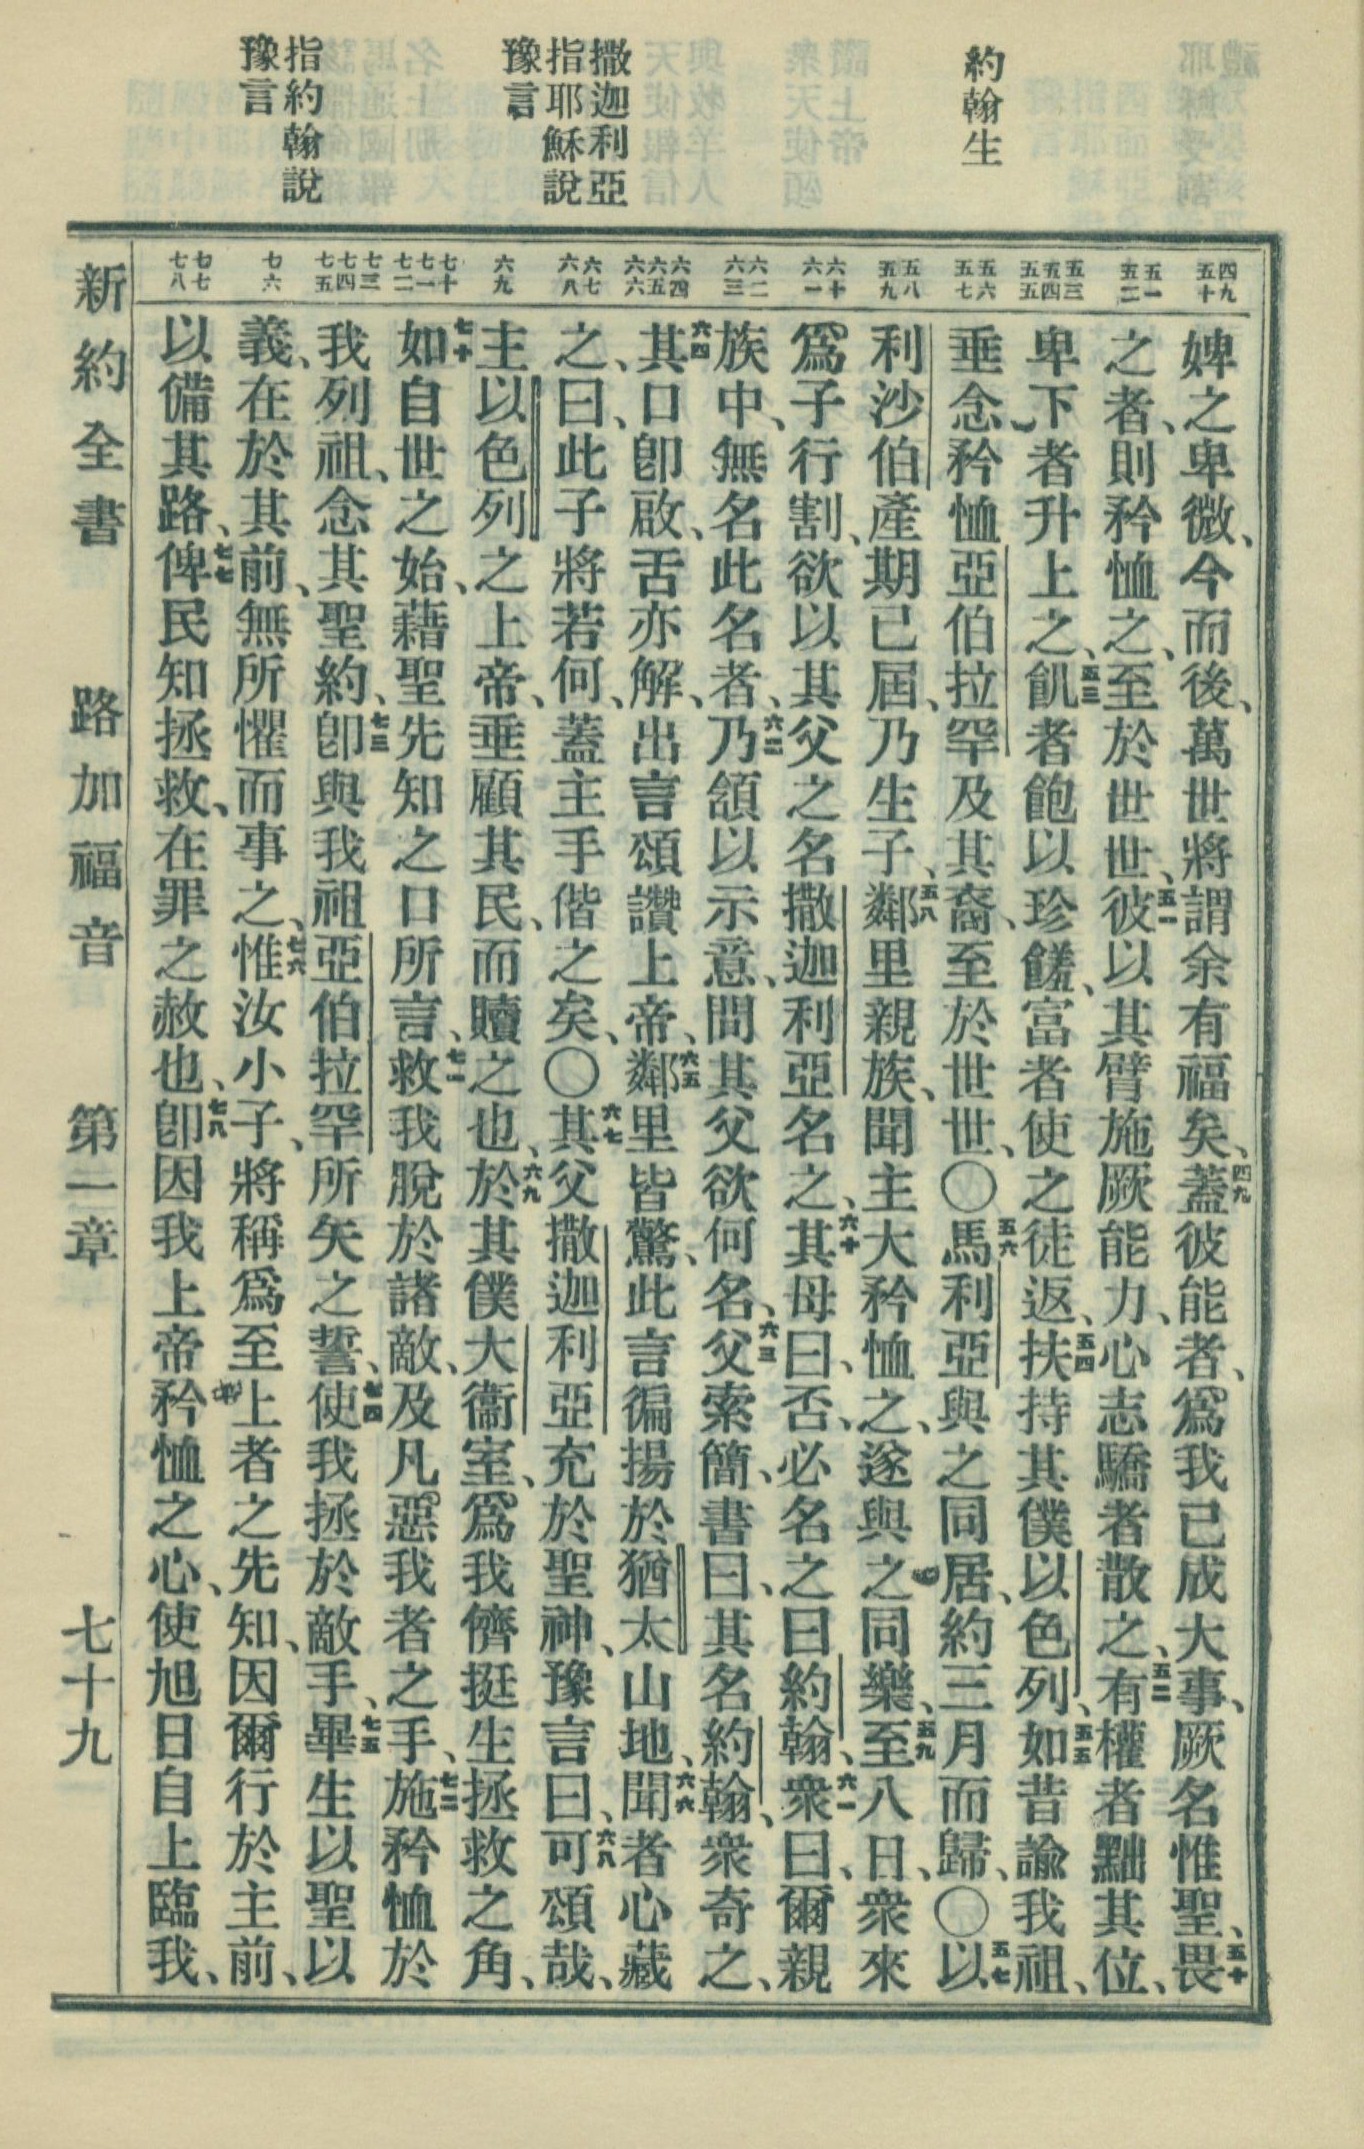 約翰生
撒迦利亞
指耶穌說
豫言
指約翰說
豫言
四九 五十
五一 五二
五三 五四 五五
五六 五七
五八 五九
六十 六一
六二 六三
六四 六五 六六
六七 六八
六九
七十 七一 七二
七三 七四 七五
七六
七七 七八
婢之卑微、今而後、萬世將謂余有福矣、四九蓋彼能者、爲我已成大事、厥名惟聖、五十畏
之者、則矜恤之、至於世世、五一彼以其臂施厥能力、心志驕者散之、五二有權者黜其位、
卑下者升上之、五三飢者飽以珍饈、富者使之徒返、五四扶持其僕以色列、五五如昔諭我祖、
垂念矜恤亞伯拉罕及其裔、至於世世、〇五六馬利亞與之同居、約三月而歸、〇五七以
利沙伯產期已屆、乃生子、五八鄰里親族、聞主大矜恤之、遂與之同樂、五九至八日、衆來
爲子行割、欲以其父之名撒迦利亞名之、六十其母曰、否、必名之曰約翰、六一衆曰、爾親
族中、無名此名者、六二乃頷以示意、問其父欲何名、六三父索簡、書曰、其名約翰、衆奇之、
六四其口卽啟、舌亦解、出言頌讚上帝、六五鄰里皆驚、此言徧揚於猶太山地、六六聞者心藏
之、曰、此子將若何、蓋主手偕之矣、〇六七其父撒迦利亞充於聖神、豫言曰、六八可頌哉、
主以色列之上帝、垂顧其民、而贖之也、六九於其僕大衞室、爲我儕挺生拯救之角、
七十如自世之始、藉聖先知之口所言、七一救我脫於諸敵、及凡惡我者之手、七二施矜恤於
我列祖、念其聖約、七三卽與我祖亞伯拉罕所矢之誓、七四使我拯於敵手、七五畢生以聖以
義、在於其前、無所懼而事之、七六惟汝小子、將稱爲至上者之先知、因爾行於主前、
以備其路、七七俾民知拯救、在罪之赦也、七八卽因我上帝矜恤之心、使旭日自上臨我、
新約全書 路加福音 第一章 七十九